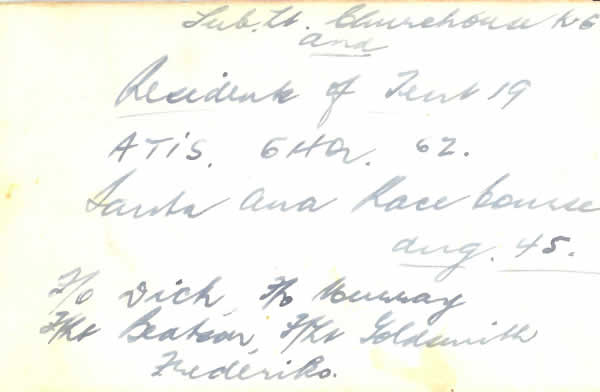 Sub. Lt. Churchouse
and
Residents of Tent 19
ATIS. GHQ. 62.
Santa Ana Race Course
Aug. 45.
F/O Dick, F/O Murray
F/Lt Beatson, F/Lt Goldsmith
Frederiko.